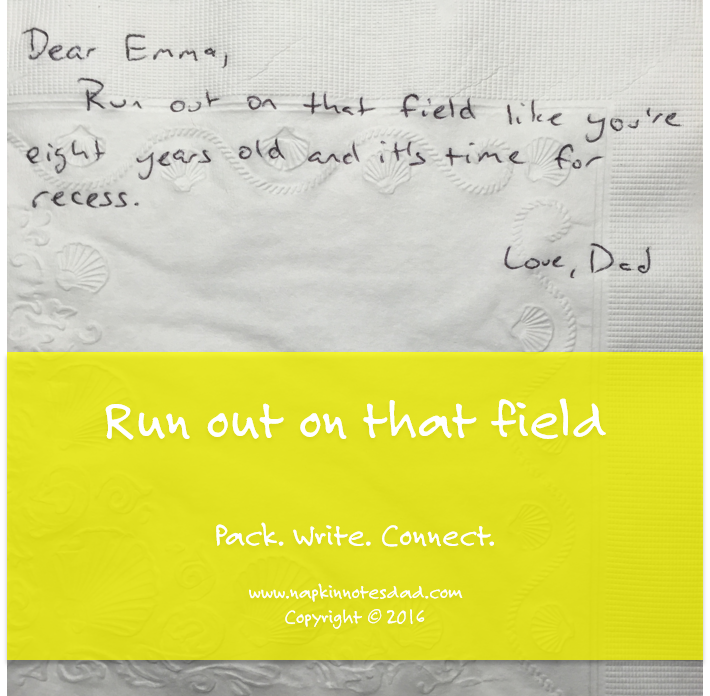 Dear Emma,
Run out on that field like you're
eight years old and it's time for
recess.
Love, Dad
Run out on that field
Pack. Write. Connect.
www.napkinnotesdad.com
Copyright © 2016